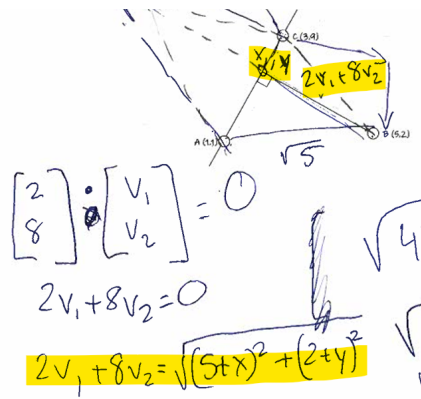 C (3,9)
x, y
2v₁+8v₂
A (1,1)
B (5,2)
√5
[2 8] • [v₁ v₂] = 0
2v₁+8v₂=0
√4
2v₁+8v₂=√(5+x)²+(2+y)²
√